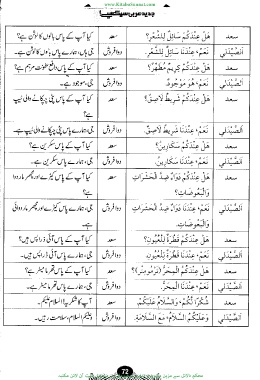 www.KitaboSunnat.com
جدید عربی سیکھیے
سعد هَلْ عِنْدَكُمْ سَائِلٌ لِلشَّعْرِ؟ سعد کیا آپ کے پاس بالوں کا لوشن ہے؟
اَلصَّيْدَلِي نَعَمْ، عِنْدَنَا سَائِلٌ لِلشَّعْرِ. دوا فروش جی ہاں، ہمارے پاس بالوں کا لوشن ہے۔
سعد هَلْ عِنْدَكُمْ كَرِيمٌ مُطَهِّرٌ؟ سعد کیا آپ کے پاس دافع عفونت مرہم ہے؟
اَلصَّيْدَلِي نَعَمْ، هُوَ مَوْجُودٌ. دوا فروش جی، موجود ہے۔
سعد هَلْ عِنْدَكُمْ شَرِيطٌ لَاصِقٌ؟ سعد کیا آپ کے پاس پٹی چپکانے والی ٹیپ
ہے؟
اَلصَّيْدَلِي نَعَمْ، عِنْدَنَا شَرِيطٌ لَاصِقٌ. دوا فروش جی، ہمارے پاس پٹی چپکانے والی ٹیپ ہے۔
سعد هَلْ عِنْدَكُمْ سَكَارِينُ؟ سعد کیا آپ کے پاس سکرین ہے؟
اَلصَّيْدَلِي نَعَمْ، عِنْدَنَا سَكَارِينُ. دوا فروش جی، ہمارے پاس سکرین ہے۔
سعد هَلْ عِنْدَكُمْ دَوَاءٌ ضِدُّ الْحَشَرَاتِ سعد کیا آپ کے پاس کیڑے اور مچھر مار دوا
وَالْبَعُوضَاتِ؟ ہے؟
اَلصَّيْدَلِي نَعَمْ، عِنْدَنَا دَوَاءٌ ضِدُّ الْحَشَرَاتِ دوا فروش جی، ہمارے پاس کیڑے اور مچھر مار دوائی
وَالْبَعُوضَاتِ. ہے۔
سعد هَلْ عِنْدَكُمْ قَطْرَةٌ لِلْعُيُونِ؟ سعد کیا آپ کے پاس آئی ڈراپس ہیں؟
اَلصَّيْدَلِي نَعَمْ، عِنْدَنَا قَطْرَةٌ لِلْعُيُونِ. دوا فروش جی، ہمارے پاس آئی ڈراپس ہیں۔
سعد هَلْ عِنْدَكُمُ الْمِحَرُّ (تَرْمُومِتْر)؟ سعد کیا آپ کے پاس تھرمامیٹر ہے؟
اَلصَّيْدَلِي نَعَمْ، عِنْدَنَا الْمِحَرُّ. دوا فروش جی، ہمارے پاس تھرمامیٹر ہے۔
سعد شُكْرًا لَكُمْ، وَالسَّلَامُ عَلَيْكُمْ. سعد آپ کا شکریہ! السلام علیکم۔
اَلصَّيْدَلِي وَعَلَيْكُمُ السَّلَامُ، مَعَ السَّلَامَةِ. دوا فروش وعلیکم السلام، سلامت رہیں۔
72